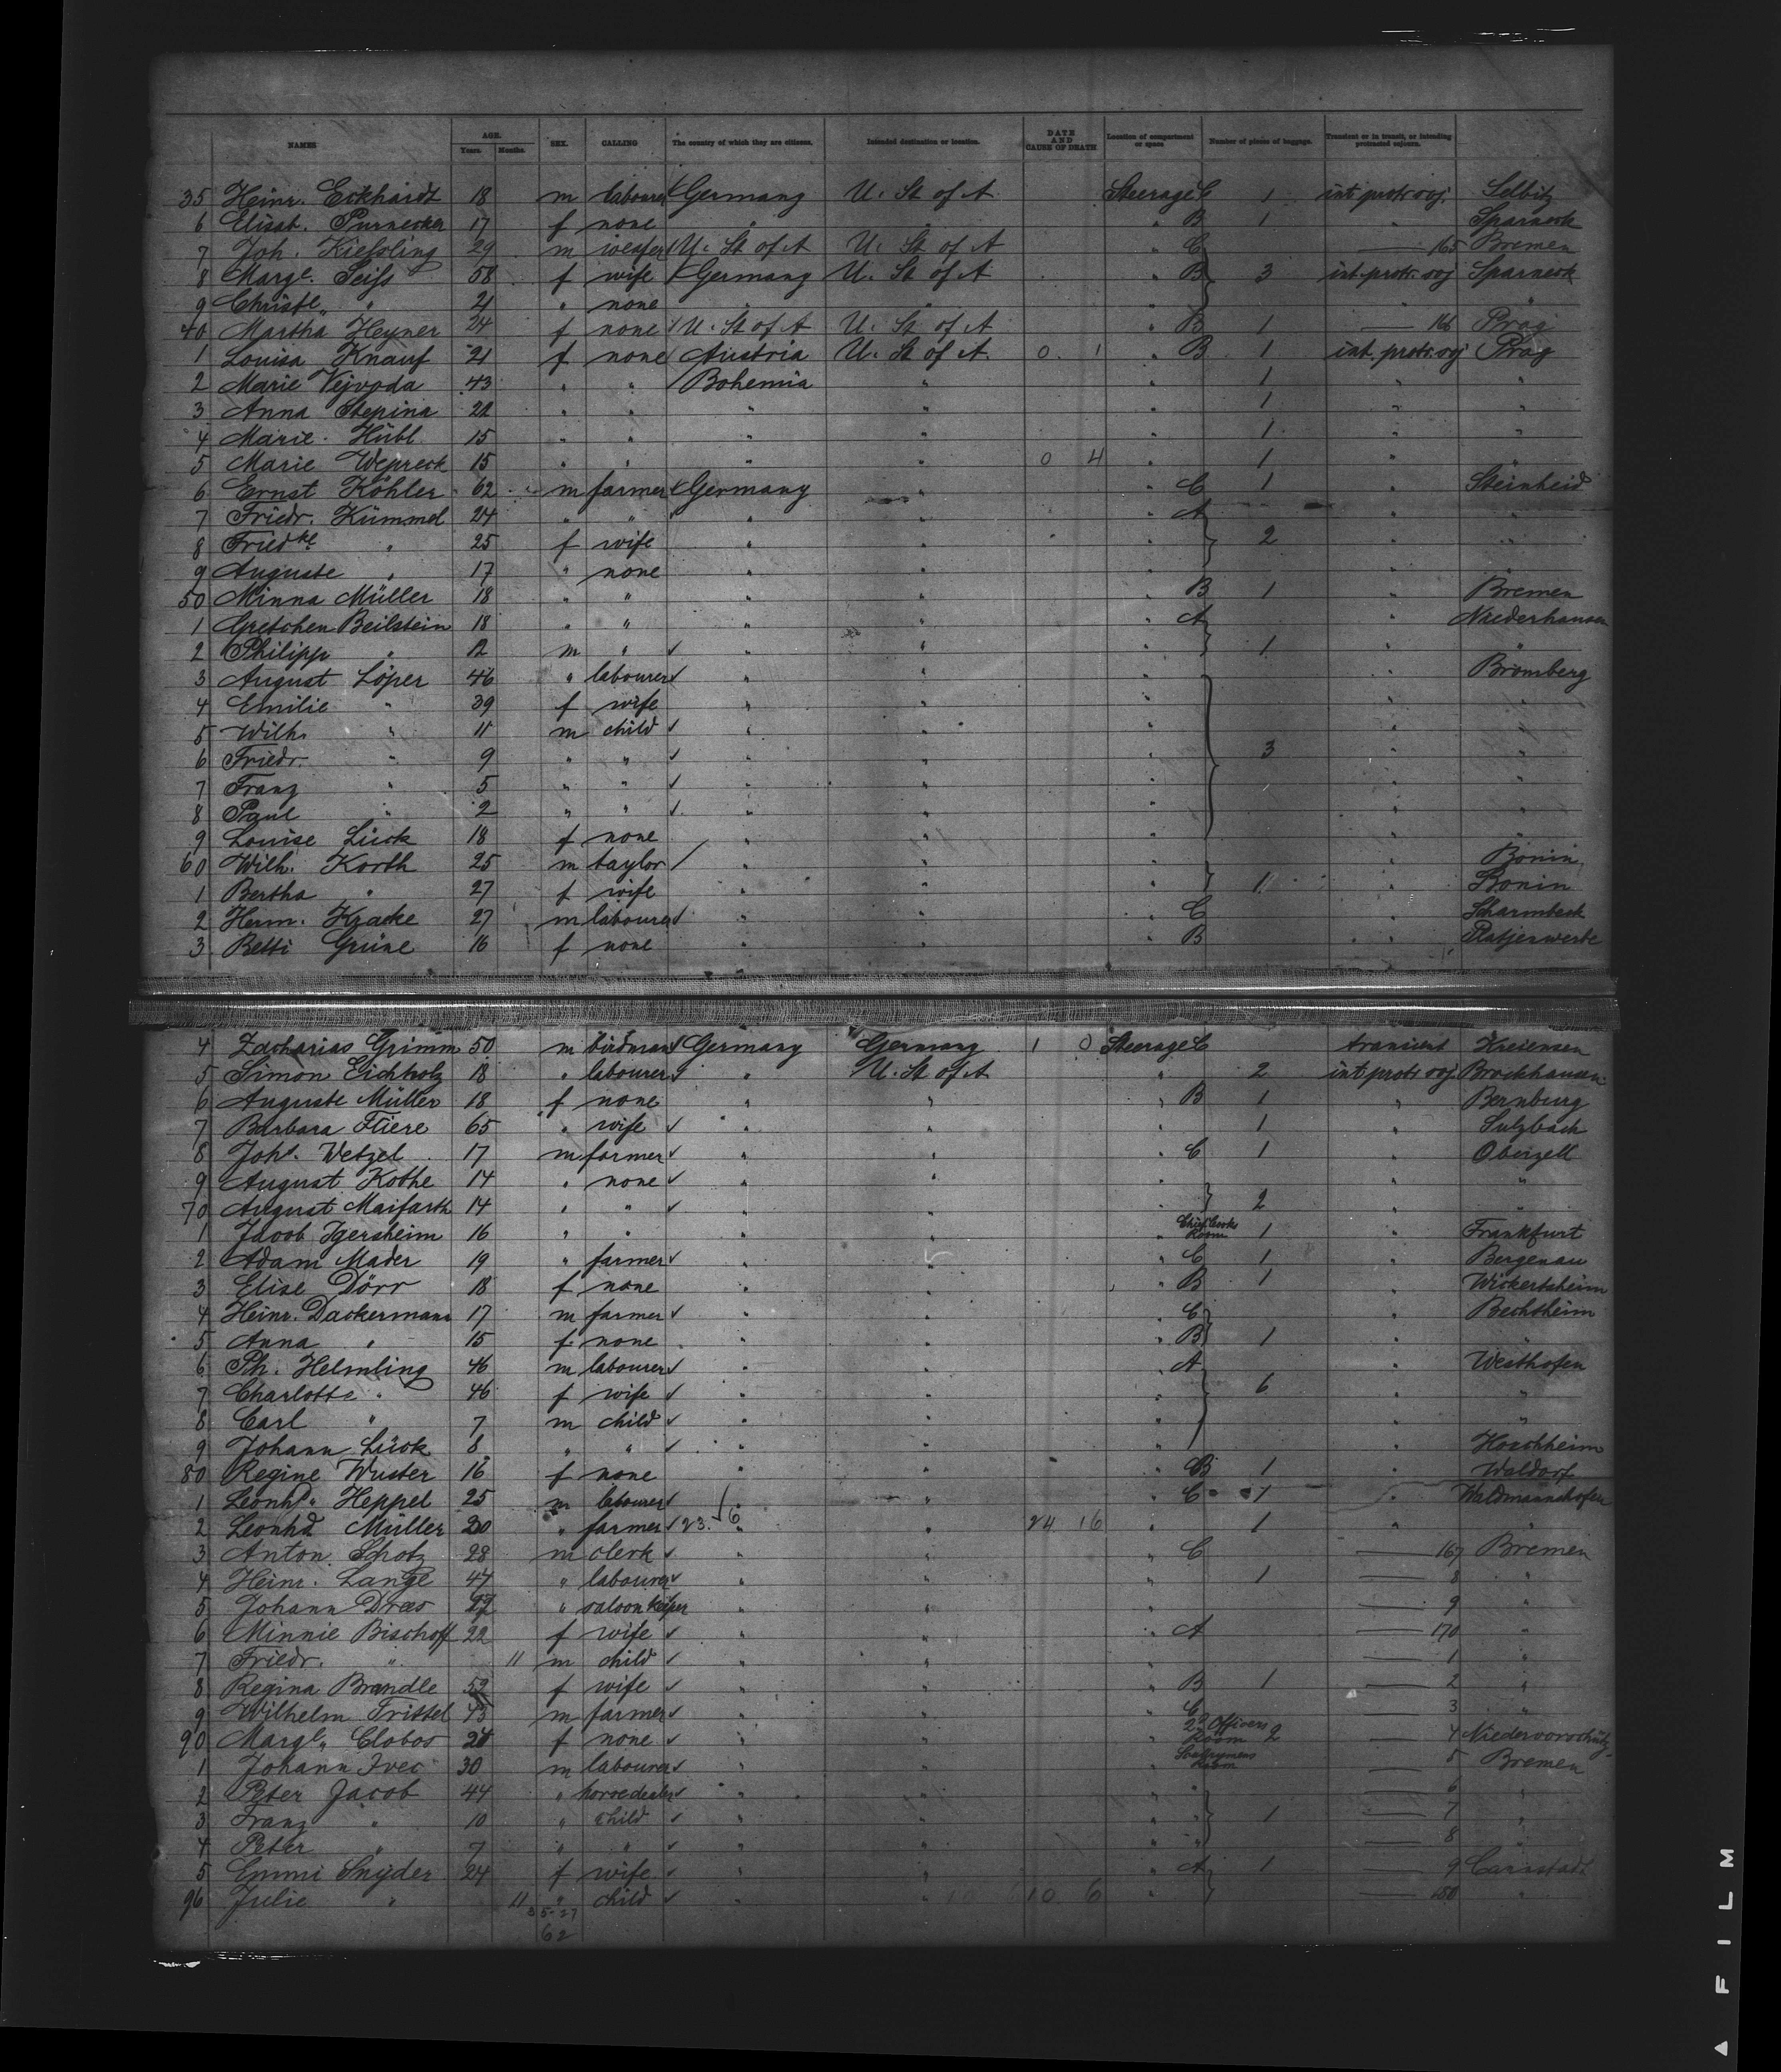 NAMES AGE. Years. Months. SEX. CALLING The country of which they are citizens. Intended destination or location. DATE AND CAUSE OF DEATH Location of compartment or space Number of pieces of baggage. Transient or in transit, or intending protracted sojourn.
35 Heinr. Eckhardt 18 m labourer Germany U. St of A Steerage C 1 int protr. soj. Selbitz
6 Elisab. Purnecker 17 f none " " " B 1 " Sparneck
7 Joh. Kießling 29 m U. St of A U. St of A " C — 165 Bremen
8 Margt. Seiß 58 f wife Germany U. St of A " B 3 int. protr. soj Sparneck
9 Christe " 21 " none " " " " "
40 Martha Heyner 24 f none U. St of A U. St of A " B 1 — 166 Prag
1 Louisa Knauf 21 f none Austria U. St of A. 0 1 " B 1 int. protr. soj Prag
2 Marie Vejvoda 43 " " Bohemia " " 1 " "
3 Anna Stepina 22 " " " " " 1 " "
4 Marie Hübl 15 " " " " " 1 " "
5 Marie Wepreck 15 " " " " 0 4 " 1 " "
6 Ernst Köhler 62 m farmer Germany " " C 1 " Steinheid
7 Friedr. Kümmel 24 " " " " " A " "
8 Friedke " 25 f wife " " " 2 " "
9 Auguste " 17 " none " " " " "
50 Minna Müller 18 " " " " " B 1 " Bremen
1 Gretchen Beilstein 18 " " " " " A " Niederhausen
2 Philipp " 12 m " " " " 1 " "
3 August Löper 46 " labourer " " " " Bromberg
4 Emilie " 39 f wife " " " " "
5 Wilh. " 11 m child " " " " "
6 Friedr. " 9 " " " " " 3 " "
7 Franz " 5 " " " " " " "
8 Paul " 2 " " " " " " "
9 Louise Lück 18 f none " " " " "
60 Wilh. Korth 25 m taylor " " " " Bonin
1 Bertha " 27 f wife " " " 1 " Bonin
2 Herm. Kracke 27 m labourer " " " C " Scharmbeck
3 Betti Grüne 16 f none " " " B " Platjenwerbe
4 Zacharias Grimm 50 m birdman Germany Germany 1 0 Steerage C transient Kreiensen
5 Simon Eichholz 18 " labourer " U. St of A " 2 int protr soj. Brockhausen
6 Auguste Müller 18 f none " " " B 1 " Bernburg
7 Barbara Fliere 65 " wife " " " 1 " Sulzbach
8 Johs. Wetzel 17 m farmer " " " C 1 " Oberzell
9 August Kothe 14 " none " " " " "
70 August Maifarth 14 " " " " " 2 " "
1 Jacob Igersheim 16 " " " " " Chief Cooks Room 1 " Frankfurt
2 Adam Mader 19 " farmer " " " C 1 " Bergenau
3 Elise Dörr 18 f none " " " B 1 " Wickertsheim
4 Heinr. Dackermann 17 m farmer " " " C " Bechtheim
5 Anna " 15 f none " " " B 1 " "
6 Ph. Helmling 46 m labourer " " " A " Westhofen
7 Charlotte " 46 f wife " " " 6 " "
8 Carl " 7 m child " " " " "
9 Johann Lück 8 " " " " " " Hochheim
80 Regine Wuster 16 f none " " " B 1 " Waldorf
1 Leonhd. Heppel 25 m labourer " " " C 1 " Waldmannshofen
2 Leonhd Müller 20 " farmer 23. 6 " " 24 16 " 1 " "
3 Anton Scholz 28 m clerk " " " C — 167 Bremen
4 Heinr. Lange 47 " labourer " " " 1 — 8 "
5 Johann Draes " saloon keeper " " " — 9 "
6 Minnie Bischoff 22 f wife " " " A — 170 "
7 Friedr. " 11 m child " " " — 1 "
8 Regina Brandle 52 f wife " " " B 1 — 2 "
9 Wilhelm Frittel 43 m farmer " " " C — 3 "
90 Margt. Clobos f none " " " 2d Officers Room 2 — 4
1 Johann Ivec 30 m labourer " " " Room — 5 Bremen
2 Peter Jacob 44 " horsedealer " " " " — 6 "
3 Franz " 10 " child " " " " 1 — 7 "
4 Peter " 7 " " " " " " — 8 "
5 Emmi Snyder 24 f wife " " " A 1 — 9 Canstadt
96 Julie " 11 " child " " 10 6 " — 180 "
62
FILM